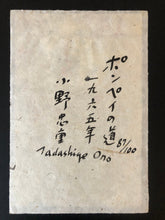 ポンペイの道
87/100
一九六五年
小野忠重
Tadashige Ono